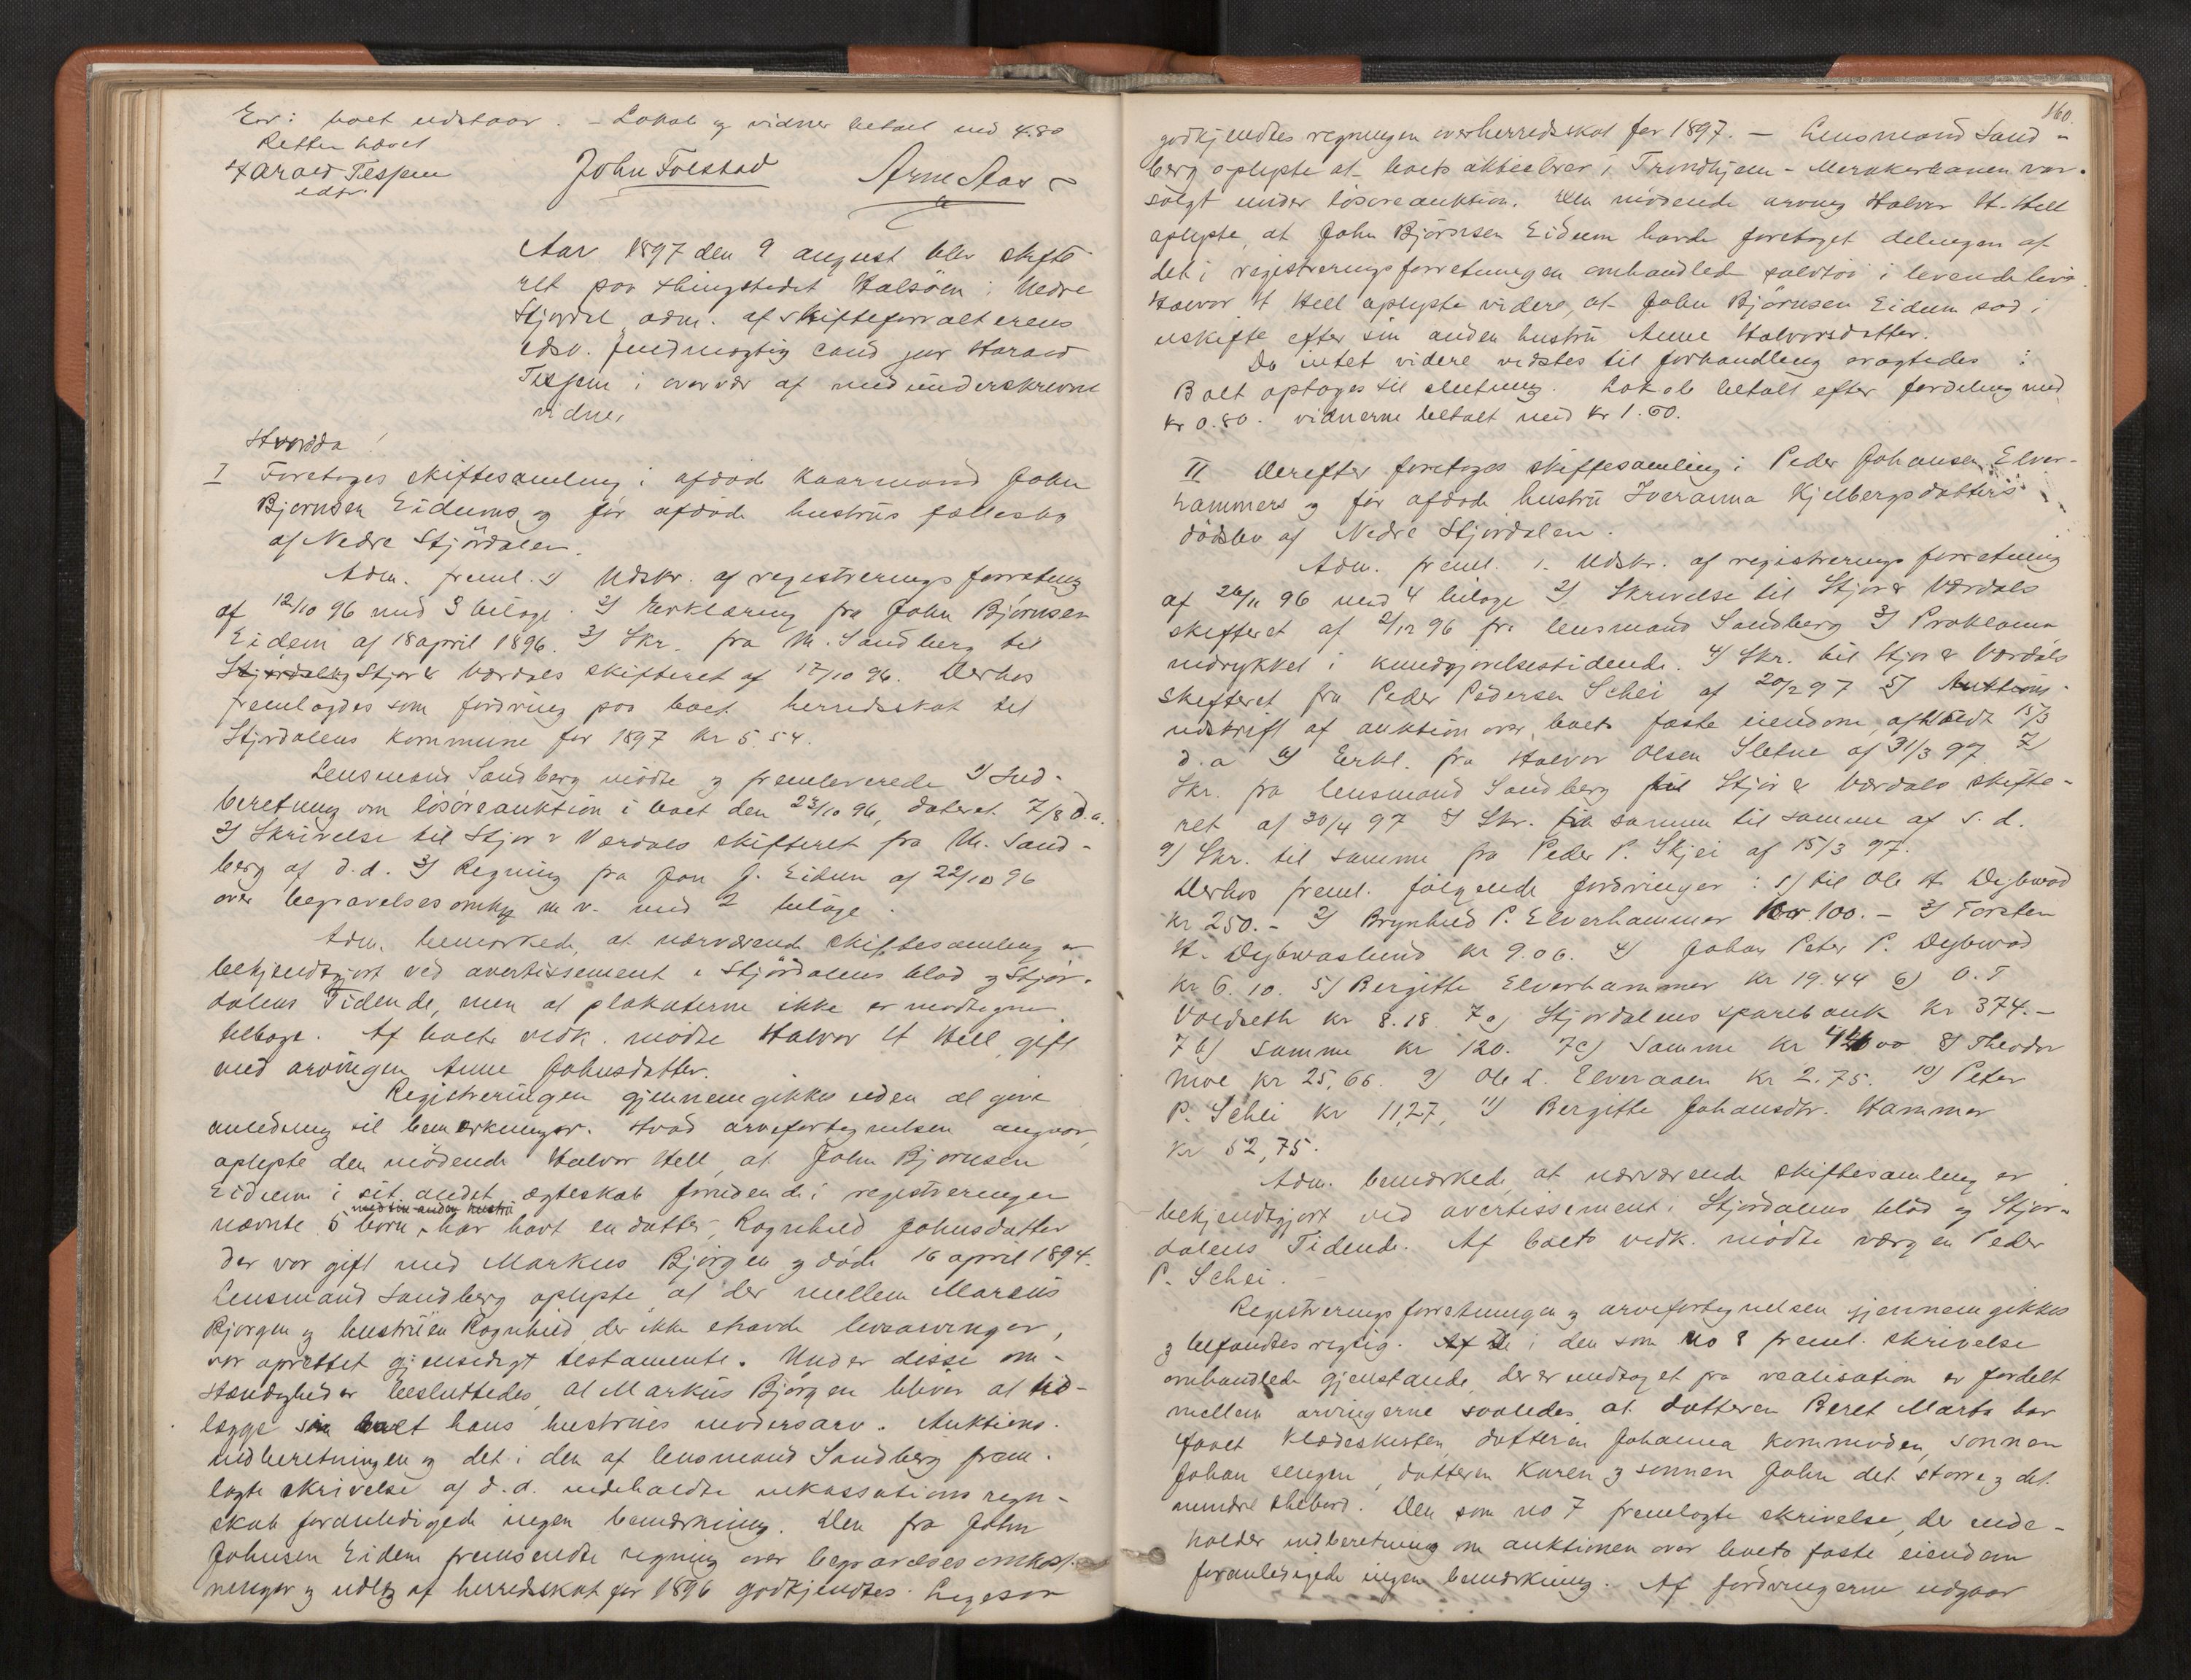 Er: boet udstaar. - Lokale og vidner betalt med 4.80
Retten hævet
Harald Tessem
edsv.
John Folstad
Arne Aas
Aar 1897 den 9 august blev skifte
ret paa thingstedet Halsöen i Nedre
Stjørdal adm. af skifteforvalterens
edsv. fuldmægtig cand jur Harald
Tessem i overvær af medunderskrevne
vidner,
Hvorda!
I Foretoges skiftesamling i afdøde kaarmand John
Bjørnsen Eidums og før afdøde hustrus fællesbo
af Nedre Stjördalen.
Adm. freml. 1) Udskr. af registreringsforretning
af 12/10 96 med 3 bilage. 2) Erklæring fra John Bjørnsen
Eidem af 18 april 1896. 3) Skr. fra M. Sandberg til
Stjördalens Stjør & Værdals skifteret af 17/10 96. Derhos
fremlagdes som fordring paa boet herredsskat til
Stjørdalens kommune for 1897 Kr 5.54.
Lensmand Sandberg mödte og fremleverede 1) Ind-
beretning om lösöreauktion i boet den 23/10 96, dateret 7/8 d.a.
2) Skrivelse til Stjør & Værdals skifteret fra M. Sand-
berg af d.d. 3) Regning fra Jon J. Eidum af 22/10 96
over begravelsesomk m v. med 2 bilage.
Adm. bemærkede, at nærværende skiftesamling er
bekjendtgjort ved avertissement i Stjördalens blad og Stjør-
dalens Tidende, men at plakaterne ikke er modtagne
tilbage. Af boets vedk. mødte Halvor H Hell, gift
med arvingen Anne Johnsdatter.
Registreringen gjennemgikkes uden at give
anledning til bemærkninger. Hvad arvefortegnelsen angaar,
oplyste den mödende Halvor Hell, at John Bjørnsen
Eidum i sit andet ægteskab foruden de i registreringen
med sin anden hustru
nævnte 5 børn, har havt en datter, Ragnhild Johnsdatter
der var gift med Markus Bjørgen og døde 16 april 1894.
Lensmand Sandberg oplyste, at der mellem Marcus
Bjørgen og hustruen Ragnhild, der ikke havde livsarvinger,
var oprettet gjensidigt testamente. Under disse om-
stændigheder besluttedes, at Markus Bjørgen bliver at ud-
lægge hans hustrues modersarv. Auktions-
indberetningen og det i den af lensmand Sandberg frem-
lagte skrivelse af d.d. indeholdte inkassationsregn-
skab foranledigede ingen bemærkning. Den fra John
Johnsen Eidem fremsendte regning over begravelsesomkost-
ninger og udlæg af herredsskat for 1896 godkjendtes. Ligesaa
160.
godkjendtes regningen over herredsskat for 1897. - Lensmand Sand-
berg oplyste at boets aktiebrev i Trondhjem - Merakerbanen var
solgt under lösöreauktion. Den mödende arving Halvor H. Hell
oplyste, at John Björnsen Eidum havde foretaget delingen af
det i registreringsforretningen omhandlede sølvtöi i levende live.
Halvor H Hell oplyste videre, at John Bjørnsen Eidum sad i
uskifte efter sin anden hustru Anne Halvorsdatter.
Da intet videre vidstes til forhandling eragtedes:
Boet optages til slutning. Lokale betalt efter fordeling med
kr 0.80. vidnerne betalt med kr 1.60.
II Derefter foretoges skiftesamling i Peder Johansen Elver-
hammers og før afdøde hustru Iveranna Kjelbergsdatters
dödsbo af Nedre Stjørdalen.
Adm. freml. 1. Udskr. af registreringsforretning
af 26/11 96 med 4 bilage 2) Skrivelse til Stjør & Værdals
skifteret af 2/12 96 fra lensmand Sandberg 3) Proklama
indrykket i kundgjørelsestidende. 4) Skr. til Stjør & Værdals
skifteret fra Peder Pedersen Schei af 20/2 97 5) Auktions-
udskrift af auktion over boets faste eiendom, afholdt 15/3
d.a 6) Erkl. fra Halvor Olsen Sletne af 31/3 97. 7)
Skr. fra lensmand Sandberg til Stjør & Værdals skifte-
ret af 30/4 97 8) Skr. fra samme til samme af s.d.
9) Skr. til samme fra Peder P. Skjei af 15/3 97.
Derhos freml. følgende fordringer: 1) til Ole H. Dybwad
kr 250.- 2) Brynhild P. Elverhammer kr 100.- 3) Torsten
H. Dybwaslund kr 9.06. 4) Johan Peter P. Dybwad
kr 6.10. 5) Bergitte Elverhammer kr 19.44 6) O. T
Voldseth kr 8.18. 7a) Stjørdalens sparebank kr 374.-
7b) samme kr 120. 7c) samme kr 8) Theodor
Moe kr 25,66. 9) Ole L. Elveraaen kr 2.75. 10) Peter
P. Schei kr 11,27, 11) Bergitte Johansdtr. Hammer
kr 52,75.
Adm. bemærkede, at nærværende skiftesamling er
bekjendtgjort ved avertissement i Stjørdalens blad og Stjør-
dalens Tidende. Af boets vedk. mödte værgen Peder
P. Schei.
Registreringsforretningen og arvefortegnelsen gjennemgikkes
og befandtes rigtig. Af de i den som No 8 freml. skrivelse
omhandlede gjenstande, der er undtaget fra realisation er fordelt
mellem arvingerne saaledes, at datteren Beret Marta har
faaet klædeskisten, datteren Johanna kommoden, sønnen
Johan sengen, datteren Karen og sønnen John det større og det
mindre skebord. Den som no 7 fremlagte skrivelse, der inde-
holder indberetning om auktionen over boets faste eiendom
foranledigede ingen bemærkning. Af fordringerne udgaar